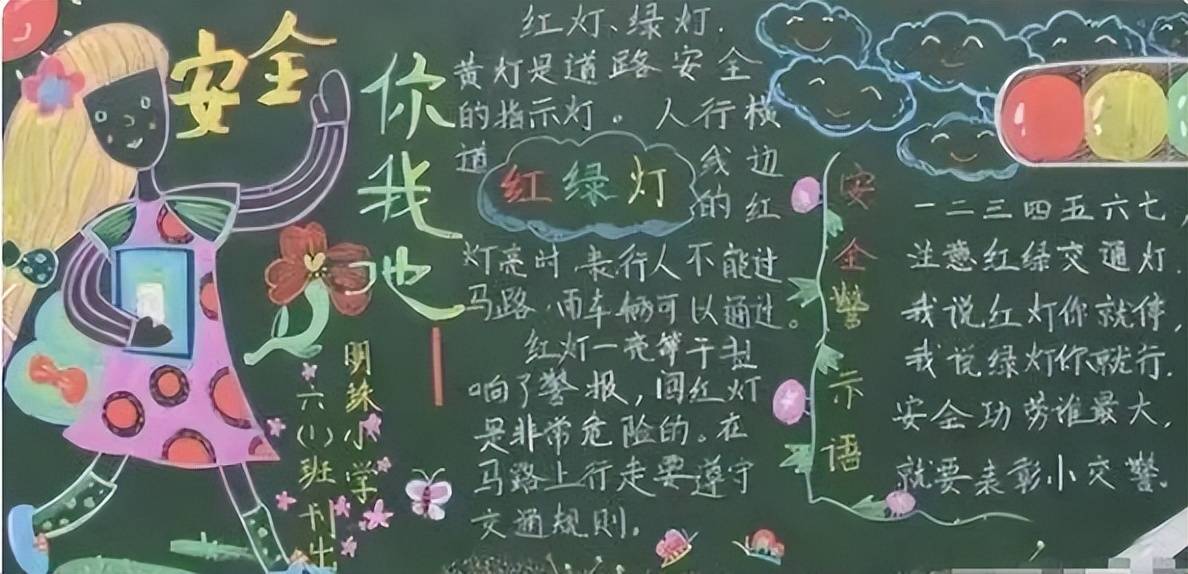 安全
你我他
红灯、绿灯.
黄灯是道路安全
的指示灯。人行横
道 线边
红绿灯
的红
灯亮时,表行人不能过
马路.而车辆可以通过。
红灯一亮等于翻
响了警报,闯红灯
是非常危险的。在
马路上行走要遵守
交通规则。
明珠小学
六(1)班
安全警示语
一二三四五六七,
注意红绿交通灯.
我说红灯你就停,
我说绿灯你就行.
安全功劳谁最大,
就要表彰小交警.